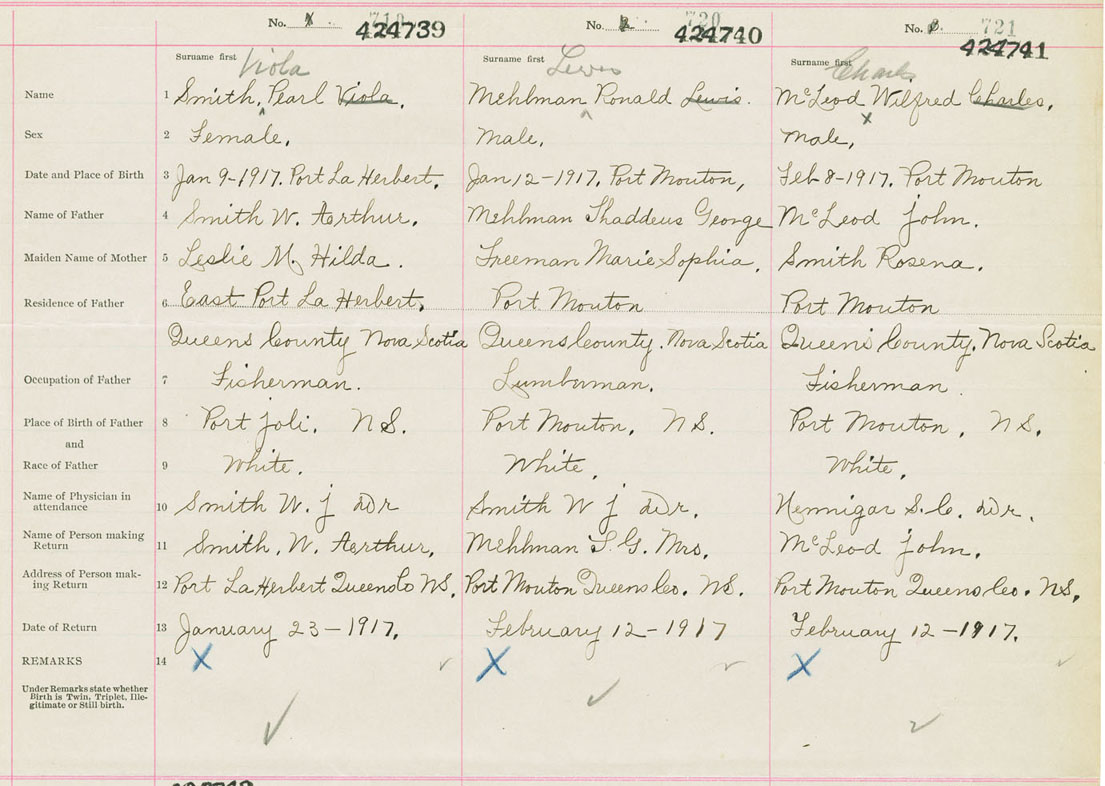 No. 1 719 424739 No. 2 720 424740 No. 3. 721 424741
Surname first Viola Surname first Lewis Surname first Charles
Name 1 Smith, Pearl Viola. Mehlman Ronald Lewis. McLeod Wilfred Charles.
Sex 2 Female. Male. Male.
Date and Place of Birth 3 Jan 9-1917. Port La Herbert. Jan 12-1917. Port Mouton, Feb 8-1917. Port Mouton
Name of Father 4 Smith W. Aerthur. Mehlman Thaddeus George McLeod John.
Maiden Name of Mother 5 Leslie M. Hilda. Freeman Marie Sophia. Smith Rosena.
Residence of Father 6 East Port La Herbert. Port Mouton Port Mouton
Queens County Nova Scotia Queens County. Nova Scotia Queens County. Nova Scotia
Occupation of Father 7 Fisherman. Lumberman. Fisherman
Place of Birth of Father 8 Port Joli. N S. Port Mouton, N S. Port Mouton, N S.
and
Race of Father 9 White. White. White.
Name of Physician in
attendance 10 Smith W. J Dr Smith W J Dr. Hennigar S. C. Dr.
Name of Person making
Return 11 Smith, W. Aerthur. Mehlman T. G. Mrs. McLeod John.
Address of Person mak-
ing Return 12 Port La Herbert Queens Co NS. Port Mouton Queens Co. NS. Port Mouton Queens Co. NS.
Date of Return 13 January 23-1917. February 12-1917 February 12-1917.
REMARKS 14 X X X
Under Remarks state whether
Birth is Twin, Triplet, Ille-
gitimate or Still birth.